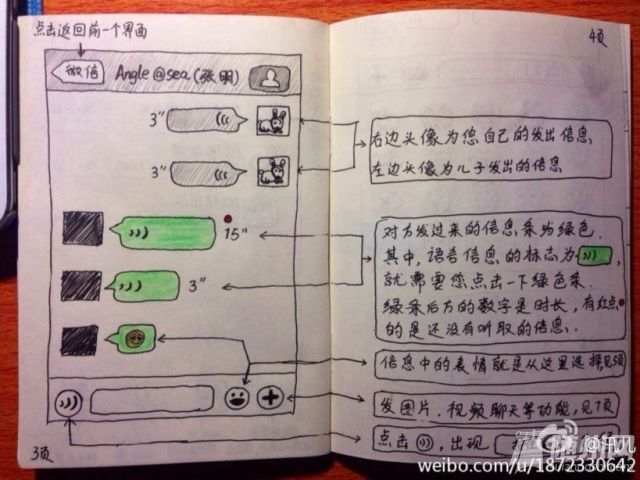 点击返回前一个界面
微信
Angle@sea.(张明)
3"
3"
15"
3"
3页
4页
右边头像为您自己的发出信息、
左边头像为儿子发出的信息
对方发过来的信息条为绿色.
其中,语音信息的标志为 ,
就需要您点击一下绿色条.
绿条后方的数字是时长,有红点
的是还没有听取的信息.
信息中的表情就是从这里选择,见
发图片、视频聊天等功能,见7页
点击 ,出现
weibo.com/u/1872330642